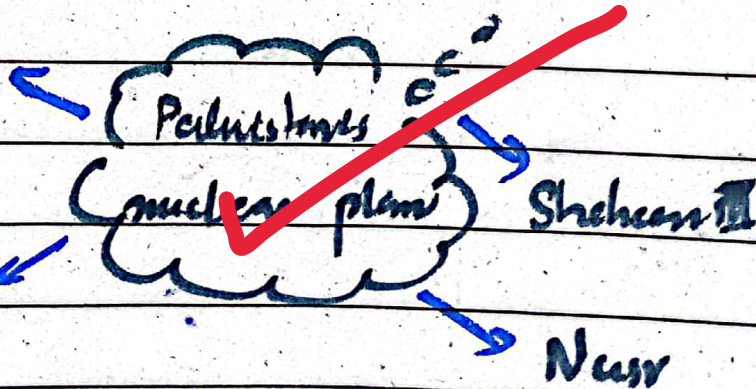 Pakistan's
nuclear plan
Shaheen III
Nasr